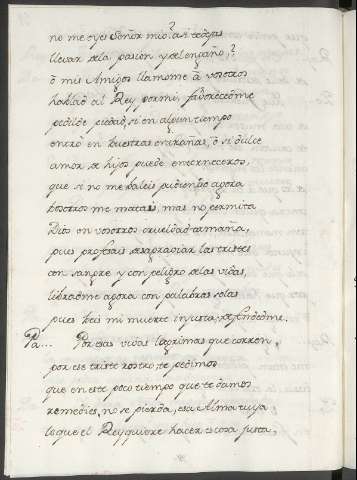 no me oyes Señor mio? asi te dejas
llevar dela pasion y del engaño,?
ô mis Amigos llamome â vosotros
hablad al Rey por mi, favorecedme
pedilde piedad, si en algun tiempo
entrò en buestras entrañas, ô si dulce
amor de hijos puede enterneceros,
que si no me valeis pudiendo agora
bosotros me matais, mas no permita
Dios en vosotros crueldad tamaña,
pues profesais desagraviar las tristes
con sangre y con peligro de las vidas,
libradme agora con palabras solas
pues veis mi muerte injusta, defendedme.
Pa... Por esas vivas lagrimas que corren,
por ese triste rostro, te pedimos
que en este poco tiempo que te damos
remedies, no se pierda, esa Alma tuya
lo que el Rey quiere hacer es cosa justa,